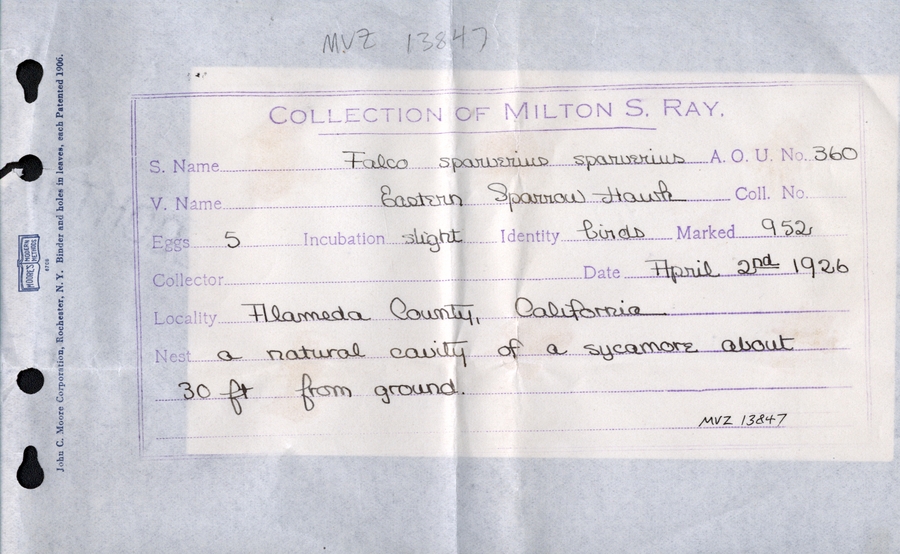 MVZ 13847
COLLECTION OF MILTON S. RAY.
S. Name Falco sparverius sparverius A. O. U. No. 360
V. Name Eastern Sparrow Hawk Coll. No.
Eggs 5 Incubation slight Identity birds Marked 952
Collector Date April 2nd 1926
Locality Alameda County, California
Nest a natural cavity of a sycamore about
30 ft from ground.
MVZ 13847
John C. Moore Corporation, Rochester, N. Y. Binder and holes in leaves, each Patented 1906.
MOORE'S MODERN METHODS